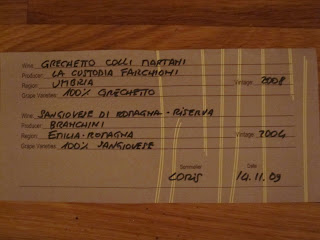 Wine: GRECHETTO COLLI MARTANI
Producer: LA CUSTODIA FARCHIONI
Region: UMBRIA Vintage: 2008
Grape Varieties: 100% GRECHETTO
Wine: SANGIOVESE DI ROMAGNA - RISERVA
Producer: BRANCHINI
Region: EMILIA-ROMAGNA Vintage: 2004
Grape Varieties: 100% SANGIOVESE
Sommelier Date
LORIS 14.11.09